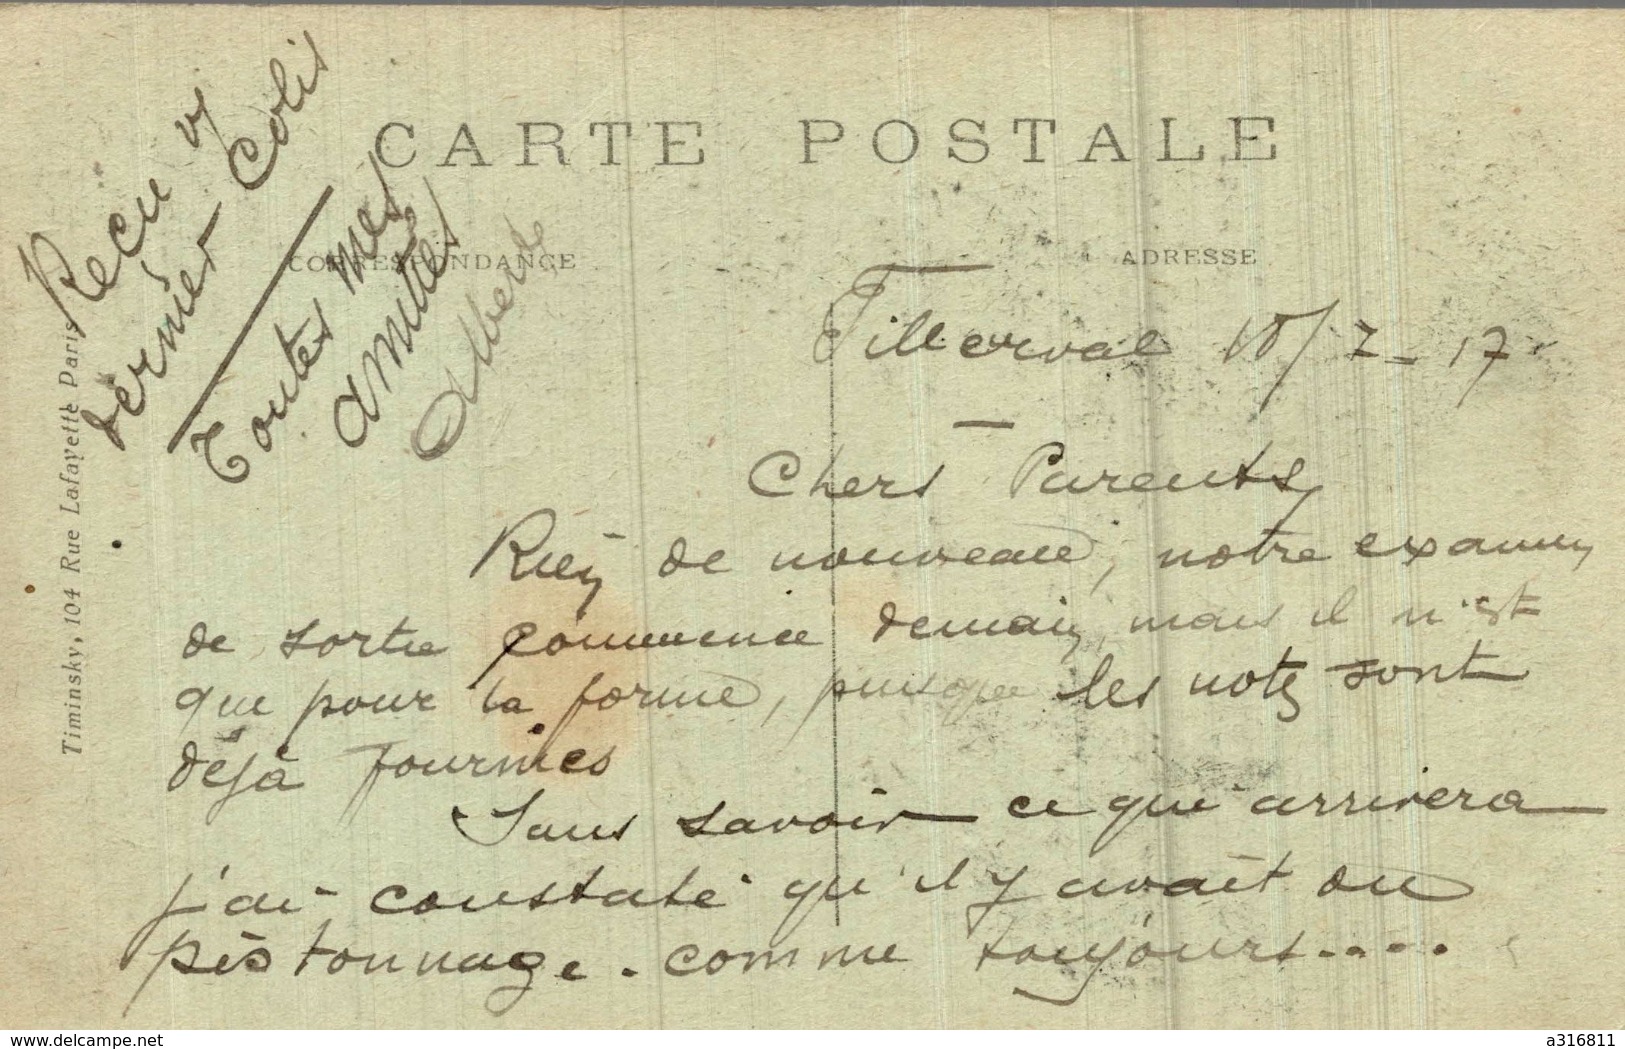 CARTE POSTALE
CORRESPONDANCE
ADRESSE
Timinsky, 104 Rue Lafayette Paris
Recu v/
dernier Colis
Toutes mes
amitiés
Albert
18/7-17
Chers Parents
Rien de nouveau, notre examen
de sortie commence demain, mais il n'est
que pour la forme, puisque les notes sont
déjà fournies
Sans savoir ce qui arrivera
j'ai constaté qu'il y avait du
pistonnage. comme toujours....
www.delcampe.net
a316811